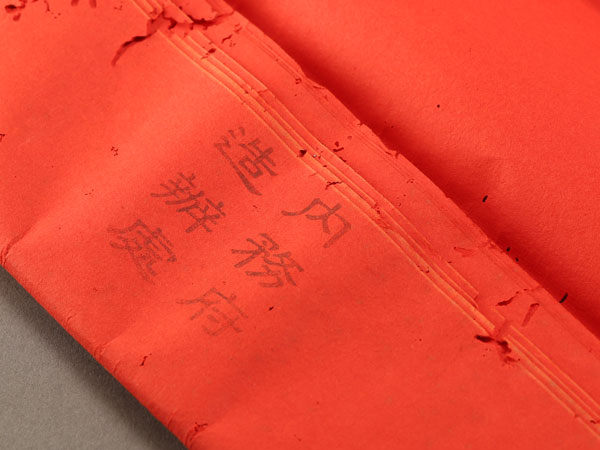 內務府
造辦處